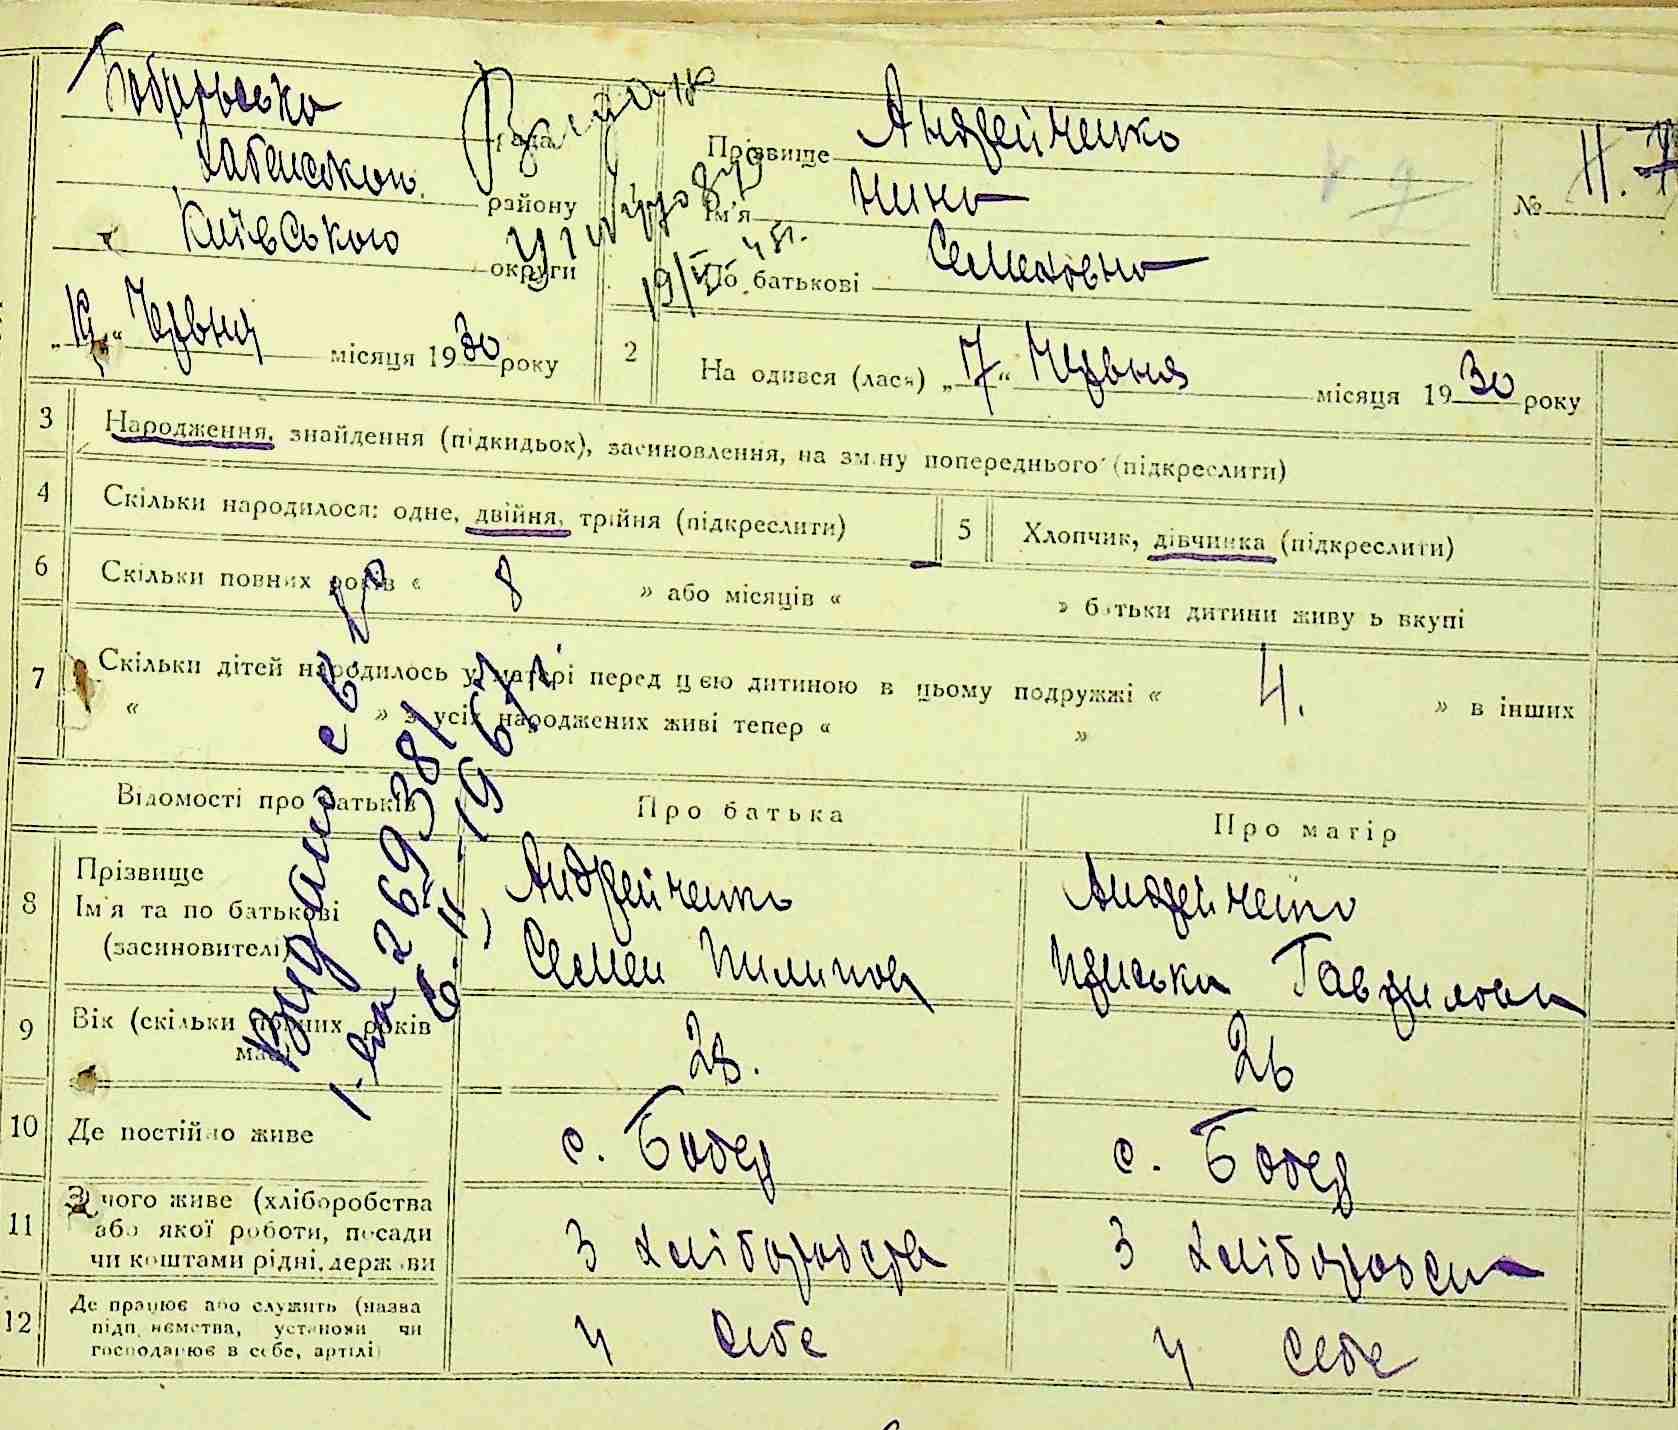 Бобрувська рада
Хабенського району
Київського округи
„19“ Червня місяця 1930 року
Прізвище Андрейченко
Ім'я Нина
По батькові Семеновна
19/VI 45г.
№ 11.
2 На одився (лася) „7“ Червня місяця 1930 року
3 Народження, знайдення (підкидьок), засиновлення, на зм.ну попереднього (підкреслити)
4 Скільки народилося: одне, двійня, трійня (підкреслити)
5 Хлопчик, дівчинка (підкреслити)
6 Скільки повних років « 8 » або місяців « » батьки дитини живу ь вкупі
7 Скільки дітей народилось у матері перед цією дитиною в цьому подружжі « 4. » в інших
« » з усіх народжених живі тепер « »
Видано св
269381
6. II-1967г.
Відомості про батьків Про батька Про матір
8 Прізвище Андрейченко Андрейченко
Ім'я та по батькові Семен Пилипов Приська Гаврилова
(засиновителі)
9 Вік (скільки повних років 28. 26
має)
10 Де постійно живе с. Бобер с. Бобер
11 З чого живе (хліборобства З хліборобства З хліборобства
або якої роботи, посади
чи коштами рідні, держави
12 Де працює або служить (назва у себе у себе
підп. ємства, установи чи
господарює в себе, артілі)